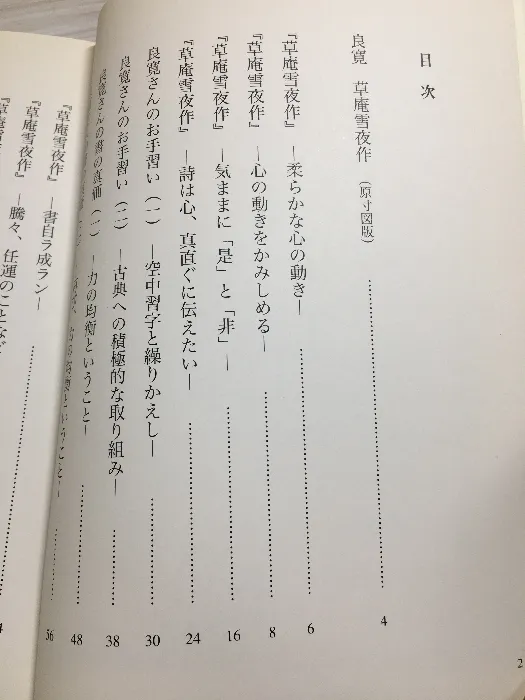 目次
良寛 草庵雪夜作（原寸図版）……4
『草庵雪夜作』 ―柔らかな心の動き―……6
『草庵雪夜作』 ―心の動きをかみしめる―……8
『草庵雪夜作』 ―気ままに「是」と「非」―……16
『草庵雪夜作』 ―詩は心、真直ぐに伝えたい―……24
良寛さんのお手習い（一） ―空中習字と繰りかえし―……30
良寛さんのお手習い（二） ―古典への積極的な取り組み―……38
良寛さんの書の真価（一） ―力の均衡ということ―……48
ということ―……56
『草庵雪夜作』 ―書自ラ成ラン―
『草庵雪夜作』 ―騰々、任運のことなど
『草庵雪
2